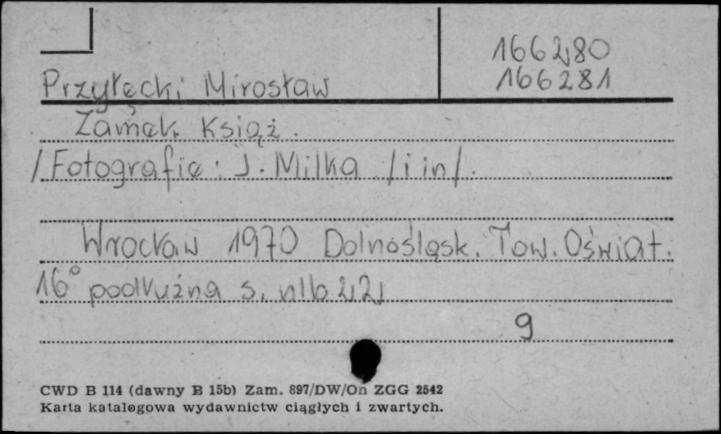 166280
166281
Przyłęcki Mirosław
Zamek Książ.
/Fotografie: J. Milka /i in/.
Wrocław 1970 Dolnośląsk. Tow. Oświat.
16° podłużna s. nlb 22
9
CWD B 114 (dawny B 15b) Zam. 897/DW/On ZGG 2542
Karta katalogowa wydawnictw ciągłych i zwartych.